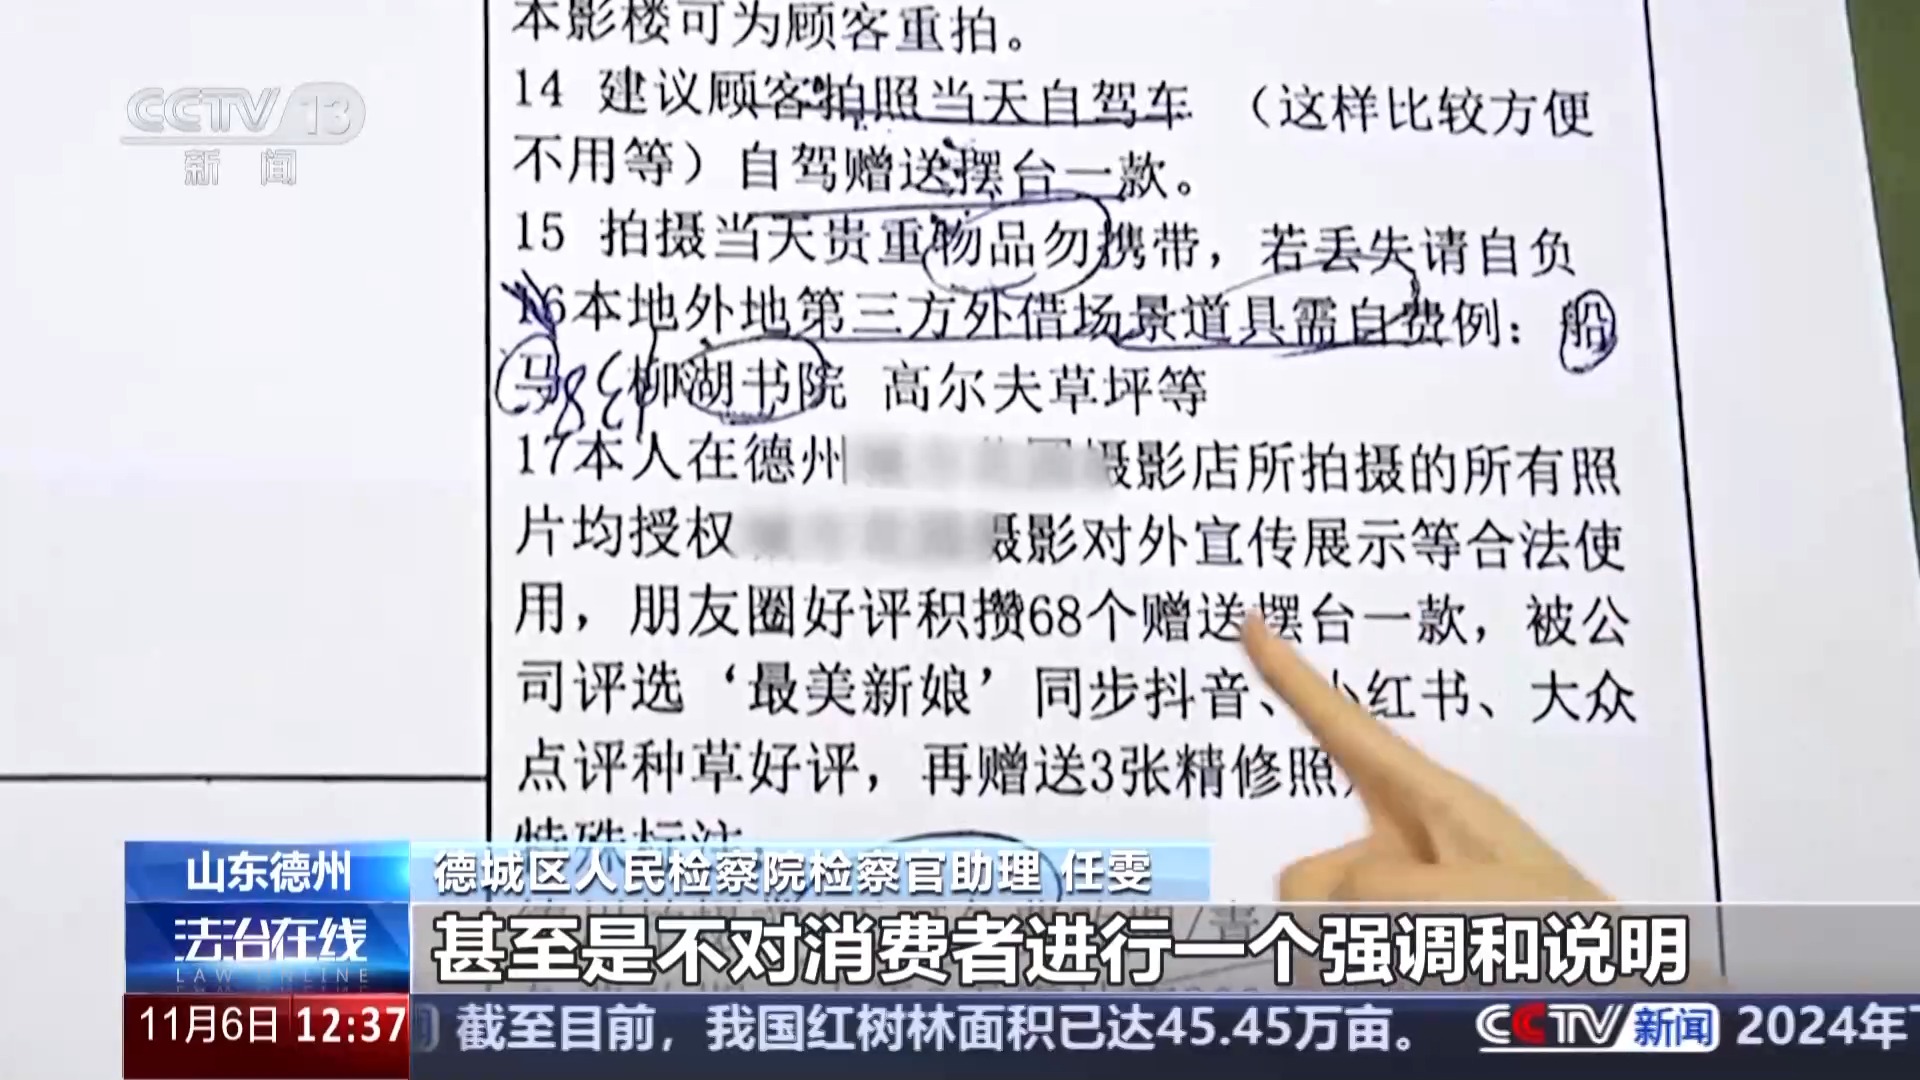 本影楼可为顾客重拍。
14 建议顾客拍照当天自驾车 （这样比较方便
不用等）自驾赠送摆台一款。
15 拍摄当天贵重物品勿携带，若丢失请自负
16本地外地第三方外借场景道具需自费例：船
马 柳湖书院 高尔夫草坪等
17本人在德州 摄影店所拍摄的所有照
片均授权 摄影对外宣传展示等合法使
用，朋友圈好评积攒68个赠送摆台一款，被公
司评选‘最美新娘’同步抖音、小红书、大众
点评种草好评，再赠送3张精修照
特殊标注
CCTV 13
新闻
山东德州
德城区人民检察院检察官助理 任雯
法治在线
LAW ONLINE
甚至是不对消费者进行一个强调和说明
11月6日 12:37
截至目前，我国红树林面积已达45.45万亩。 CCTV 新闻 2024年